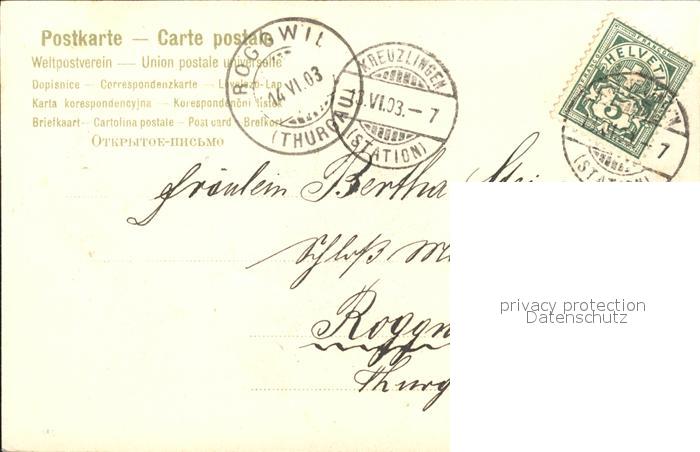 Postkarte — Carte postale
Weltpostverein — Union postale universelle
Dopisnice — Correspondenzkarte — Levelezo-Lap
Karta korespondencyjna — Korespondenční lístek
Briefkaart — Cartolina postale — Post card — Brefkort
Открытое-письмо
ROGGWIL
14 VI.03
(THURGAU)
KREUZLINGEN
VI.03.–7
(STATION)
FRANCO
HELVETIA
5
7
(STATION)
Fräulein Bertha
Schloß
Rogg
Thurg
privacy protection
Datenschutz